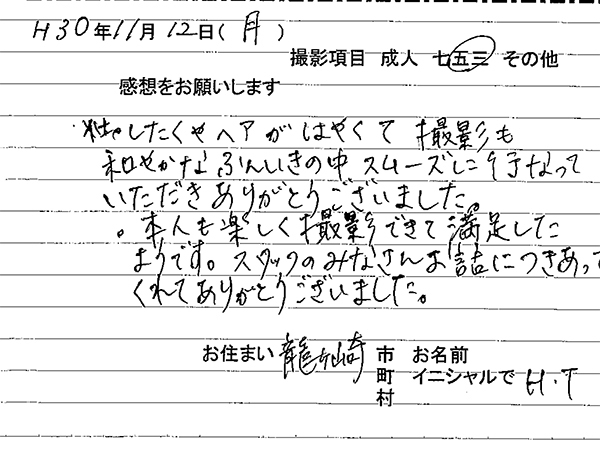 H30年11月12日(月)
撮影項目 成人 七五三 その他
感想をお願いします
したくやヘアがはやくて 撮影も
和やかなふんいきの中 スムーズに行なって
いただきありがとうございました。
。本人も楽しく撮影できて満足した
ようです。スタッフのみなさんお話につきあって
くれてありがとうございました。
お住まい 龍ヶ崎 市 お名前
町 イニシャルで H.T
村